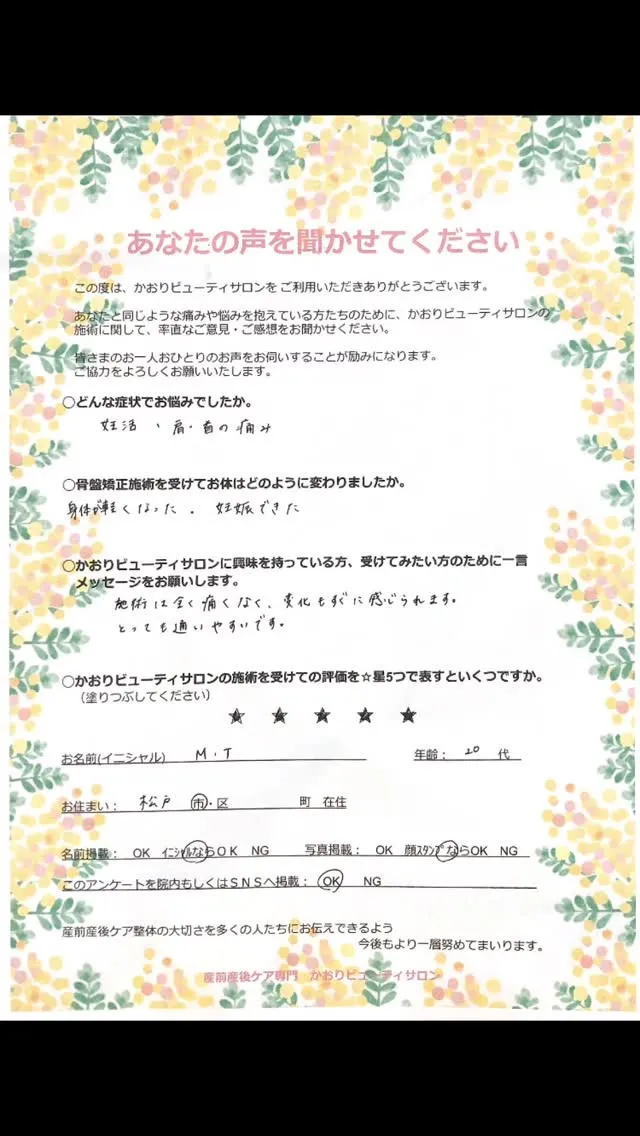 あなたの声を聞かせてください
この度は、かおりビューティサロンを ご利用いただきありがとうございます。
あなたと同じような痛みや悩みを抱えている方たちのために、かおりビューティサロンの
施術に関して、率直なご意見・ご感想をお聞かせください。
皆さまのお一人おひとりのお声をお伺いすることが励みになります。
ご協力をよろしくお願いいたします。
○どんな症状でお悩みでしたか。
妊活、肩・首の痛み
○骨盤矯正施術を受けてお体はどのように変わりましたか。
身体が軽くなった. 妊娠できた
○かおりビューティサロンに興味を持っている方、受けてみたい方のために一言
メッセージをお願いします。
施術は全く痛くなく、変化もすぐに感じられます。
とっても通いやすいです。
○かおりビューティサロンの施術を受けての評価を☆星5つで表すといくつですか。
（塗りつぶしてください）
★ ★ ★ ★ ★
お名前(イニシャル) M・T 年齢： 20 代
お住まい： 松戸 市・区 町 在住
名前掲載： OK イニシャルならOK NG 写真掲載： OK 顔スタンプならOK NG
このアンケートを院内もしくはSNSへ掲載： OK NG
産前産後ケア整体の大切さを多くの人たちにお伝えできるよう
今後もより一層努めてまいります。
産前産後ケア専門 かおりビューティサロン